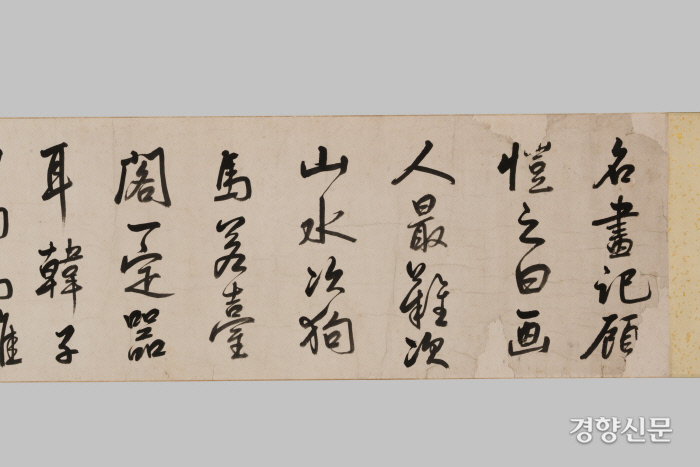 名畫記顧
愷之曰画
人最難次
山水次狗
馬若臺
閣一定器
耳韓子
경향신문